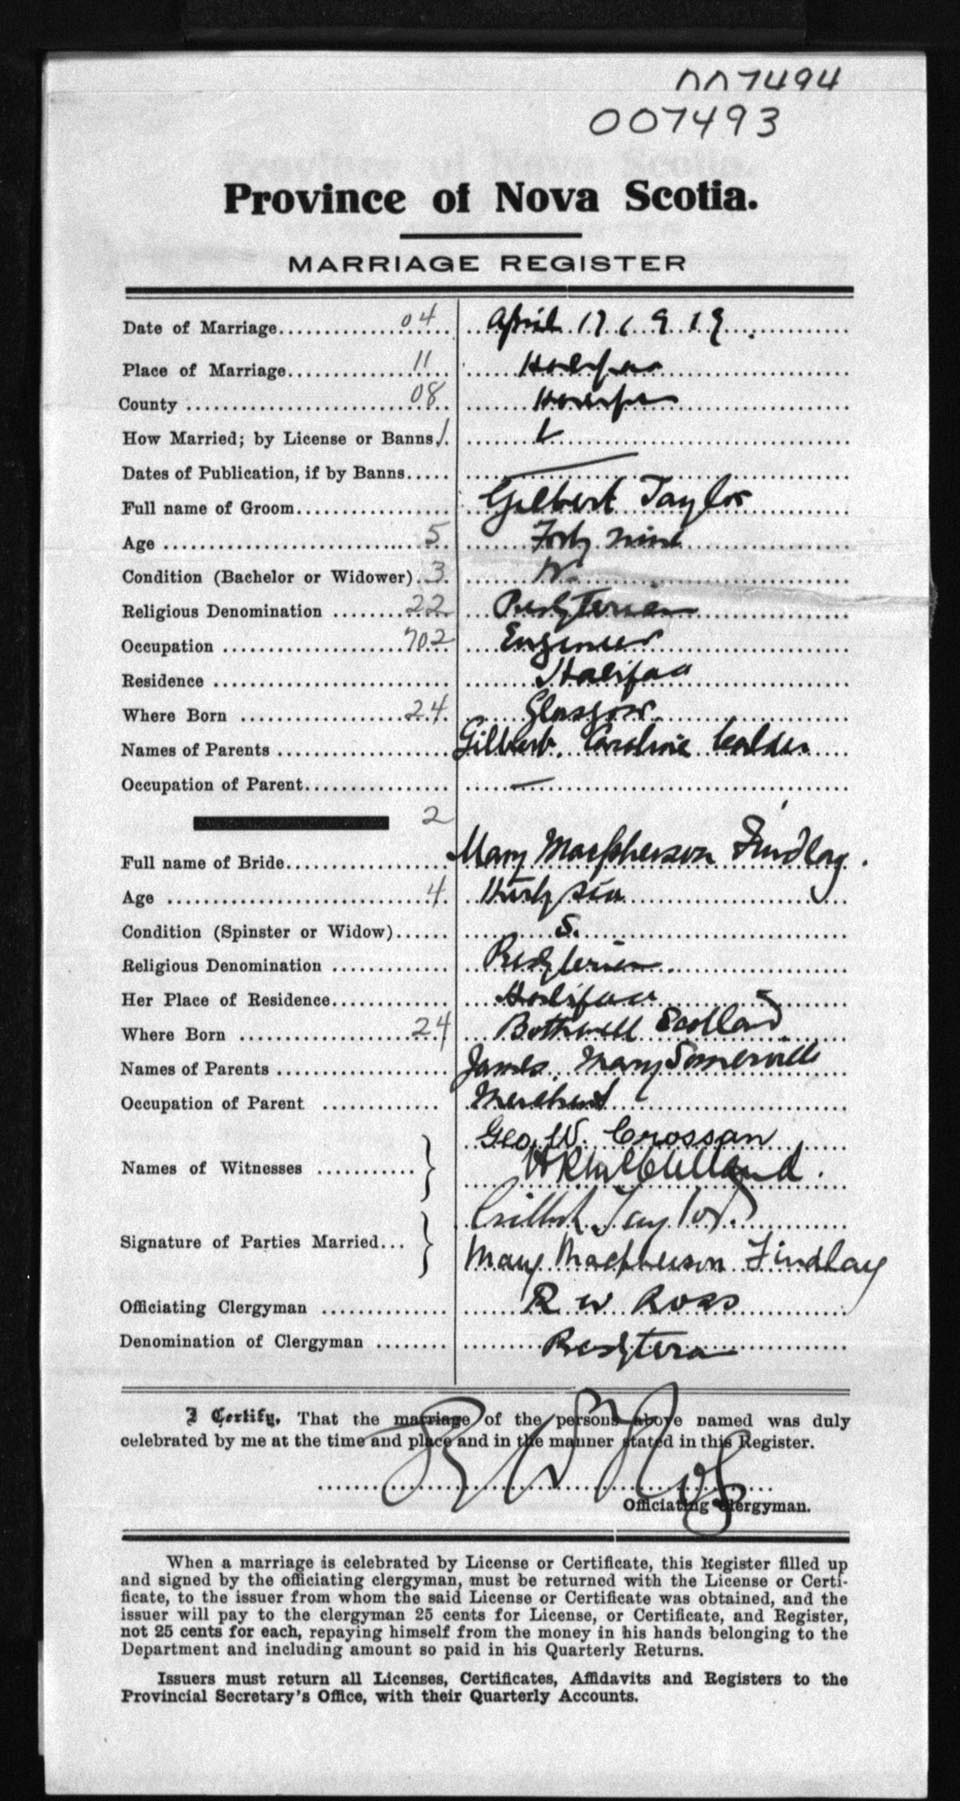 007494
007493
Province of Nova Scotia.
MARRIAGE REGISTER
Date of Marriage 04 April 17 1919.
Place of Marriage 11 Halifax
County 08 Halifax
How Married; by License or Banns 1 L
Dates of Publication, if by Banns —
Full name of Groom Gilbert Taylor
Age 5 Forty nine
Condition (Bachelor or Widower) 3 W.
Religious Denomination 22 Presbyterian
Occupation 702 Engineer
Residence Halifax
Where Born 24 Glasgow
Names of Parents Gilbert. Caroline Calder
Occupation of Parent —
2
Full name of Bride Mary Macpherson Findlay.
Age 4 Thirty six
Condition (Spinster or Widow) S.
Religious Denomination Presbyterian
Her Place of Residence Halifax
Where Born 24 Bothwell Scotland
Names of Parents James. Mary Somerville
Occupation of Parent Merchant
Geo. W. Crossan
Names of Witnesses McClelland.
Gilbert Taylor.
Signature of Parties Married
Mary Macpherson Findlay
Officiating Clergyman R W Ross
Denomination of Clergyman
I Certify, That the marriage of the persons above named was duly
celebrated by me at the time and place and in the manner stated in this Register.
R W Ross
Officiating Clergyman.
When a marriage is celebrated by License or Certificate, this Register filled up
and signed by the officiating clergyman, must be returned with the License or Certi-
ficate, to the issuer from whom the said License or Certificate was obtained, and the
issuer will pay to the clergyman 25 cents for License, or Certificate, and Register,
not 25 cents for each, repaying himself from the money in his hands belonging to the
Department and including amount so paid in his Quarterly Returns.
Issuers must return all Licenses, Certificates, Affidavits and Registers to the
Provincial Secretary's Office, with their Quarterly Accounts.